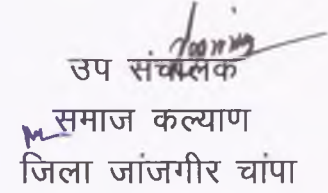 उप संचालक
समाज कल्याण
जिला जांजगीर चांपा